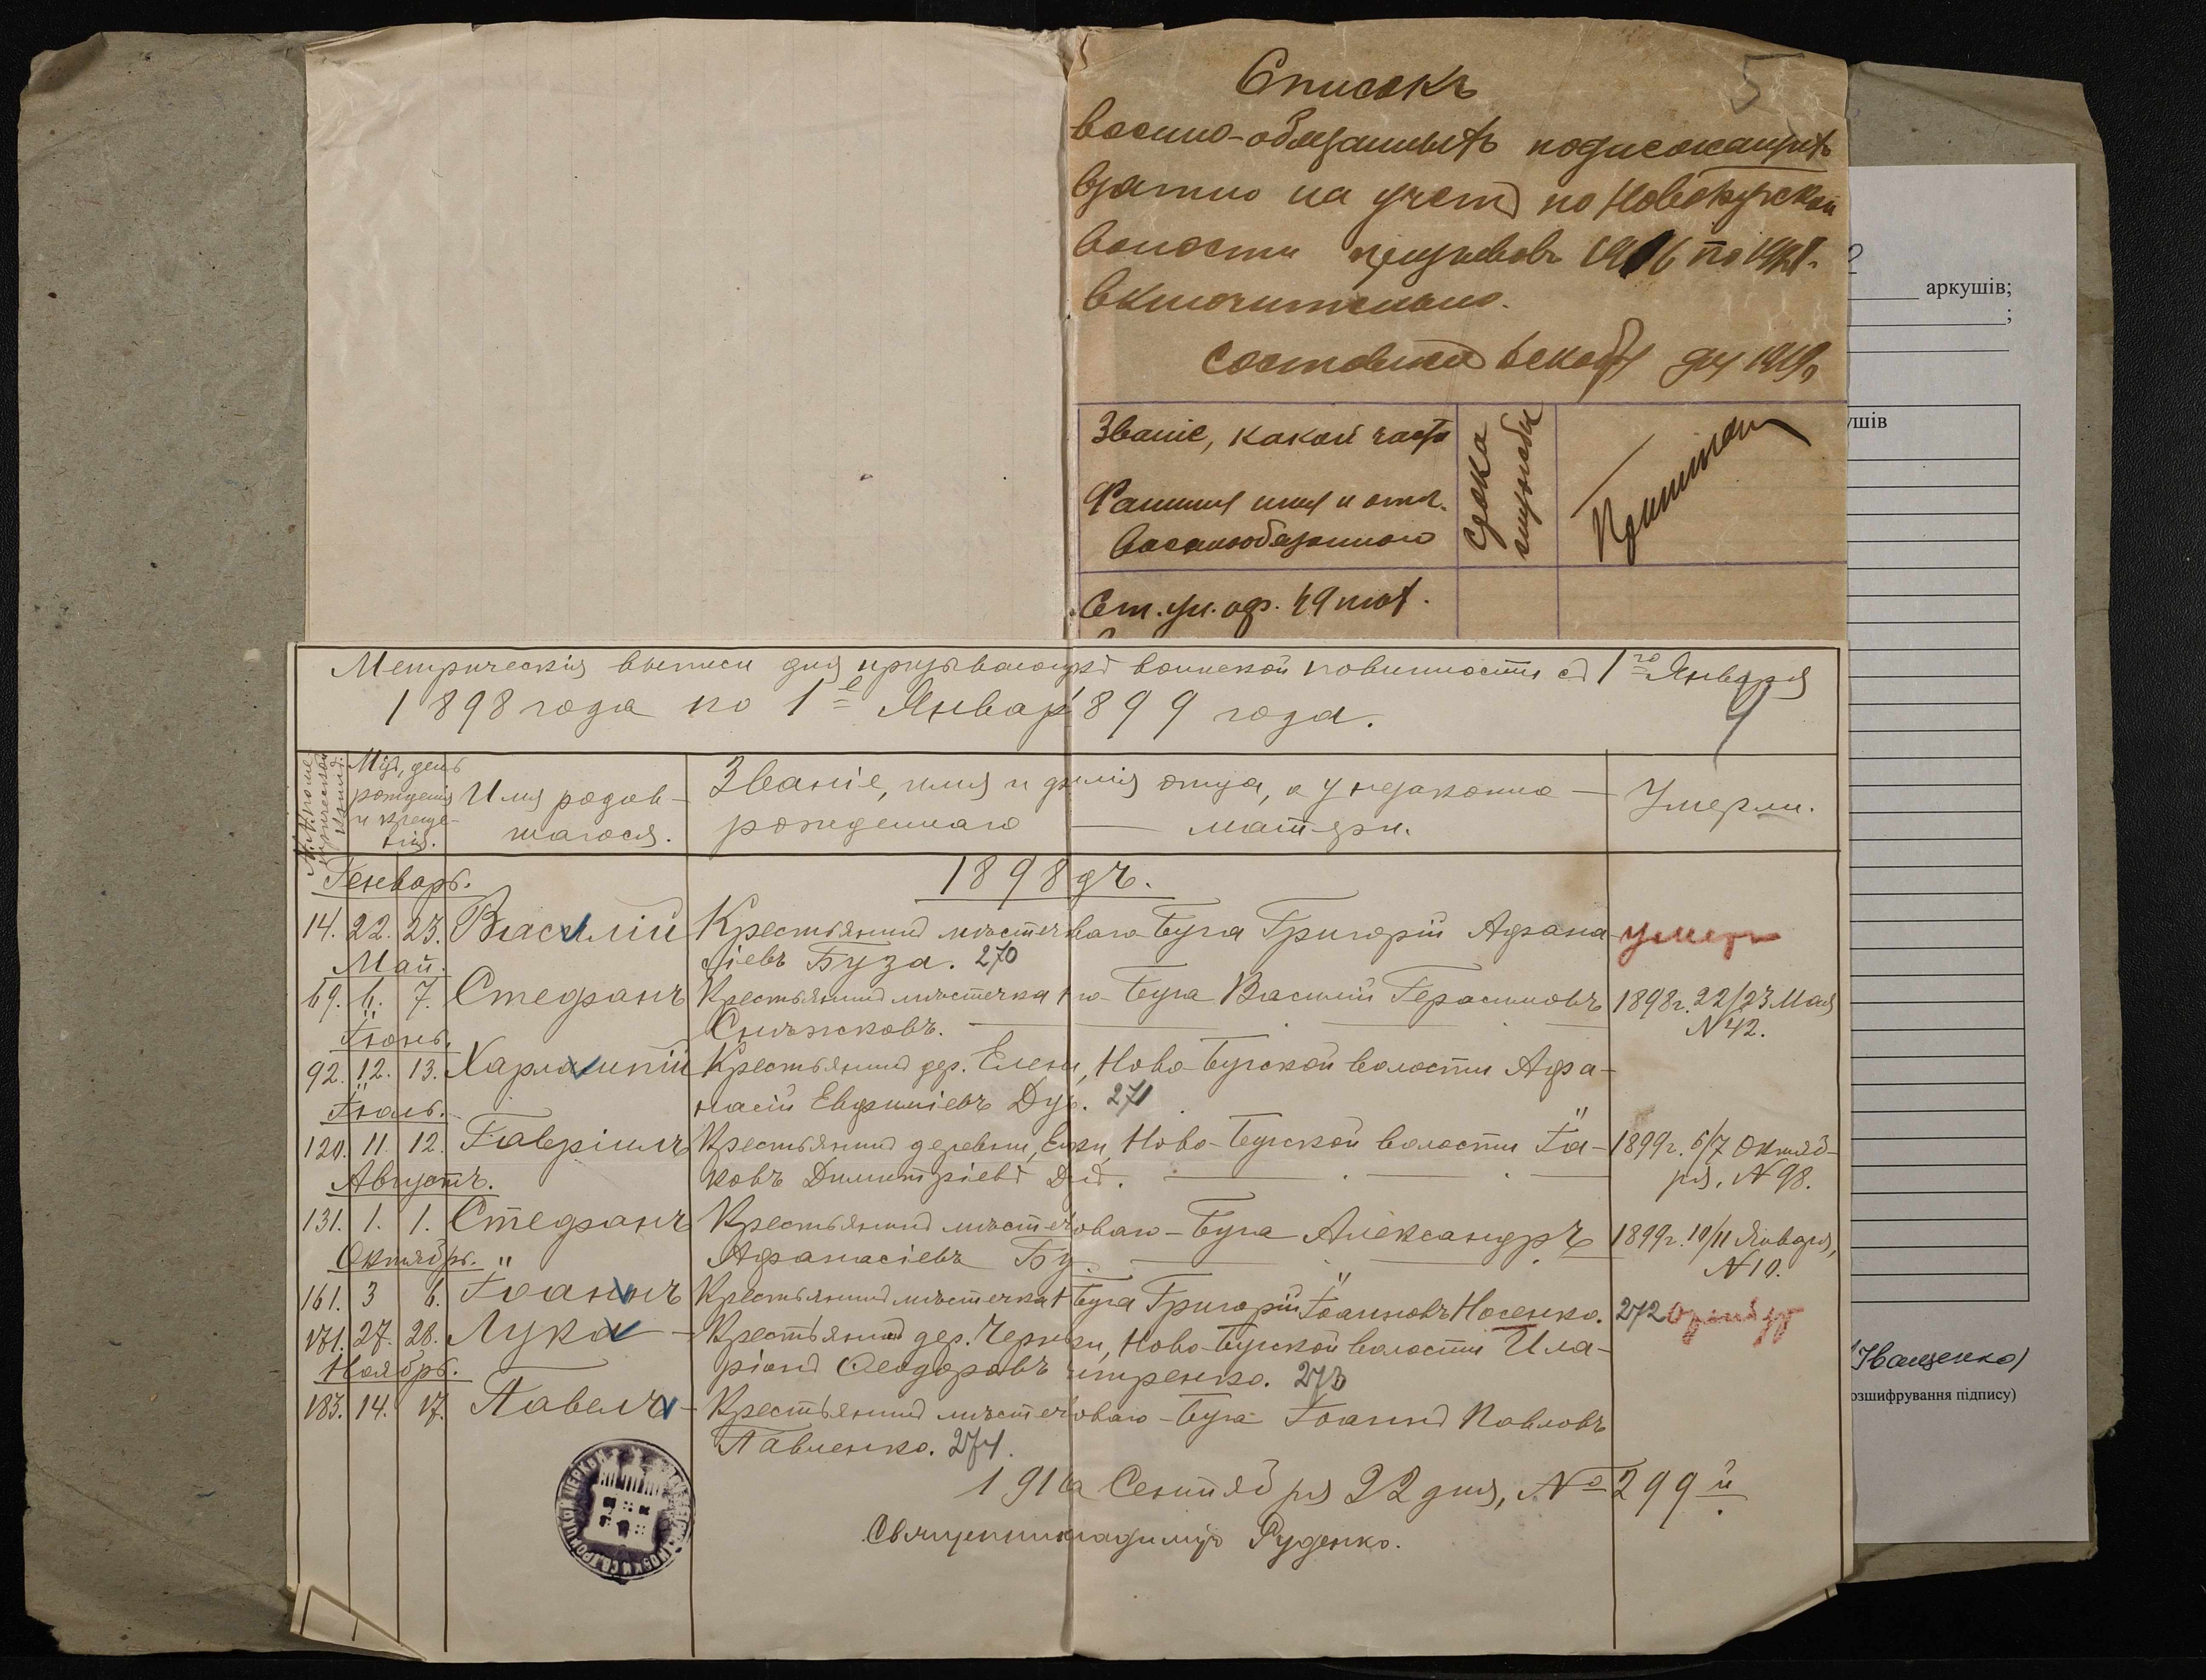 5
Списокъ
военно-обязанныхъ подлежащихъ
взятию на учетъ по Новобугской
волости призывовъ 1916 по 19
включительно.
составленъ декабря дня 1919
Званіе, какой части
Фамилия имя и отч.
военнообязанного
Срока
службы
Примѣчан
Ст. ун. оф. 49
аркушів;
;
ушів
Метрическія выписи для призываемыхъ воинской повинности съ 1го Января
1898 года по 1е Январ 1899 года.
9
№№ по ме
трической
книгѣ.
Мцъ, день
рожденія
и креще-
нія.
Имя родив-
шагося.
Званіе, имя и фмлія отца, а у незаконно
рожденнаго — матери.
Умерли.
Генварь.
1898 гъ.
14. 22. 23. Василій Крестьянинъ мѣстечка ваго-Буга Григорій Афана- умеръ
Май.
сіевъ Буза. 270
69. 6. 7. Стефанъ Крестьянинъ мѣстечка Но-Буга Василій Герасимовъ 1898г. 22/23 Мая
Снѣжковъ.
№ 42.
Іюнь.
92. 12. 13. Харлампій Крестьянинъ дер. Елен, Ново-Бугской волости Афа-
насій Евфиміевъ Ду. 271
Іюль.
120. 11. 12. Гавріилъ Крестьянинъ деревни, Ново-Бугской волости Іа- 1899г. 6/7 Октяб-
ковъ Димитріевъ Д.
ря, № 98.
Августъ.
131. 1. 1. Стефанъ Крестьянинъ мѣстечка оваго-Буга Александръ 1899г. 10/11 Января,
Афанасіевъ Бу.
№ 10.
Октябрь.
161. 3 6. Іоаннъ Крестьянинъ мѣстечка Н Буга Григорій Іоанновъ Носенко. 272
171. 27. 28. Лука Крестьянинъ дер. Черн, Ново-Бугской волости Ила-
ріонъ Ѳеодоровъ итренко. 273
Ноябрь.
183. 14. 17. Павелъ Крестьянинъ мѣстечка оваго-Буга Іоаннъ Павловъ
Павленко. 274.
1916 Сентября 22 дня, № 299й
Священник ладиміръ Руденко.
Іващенко)
озшифрування підпису)